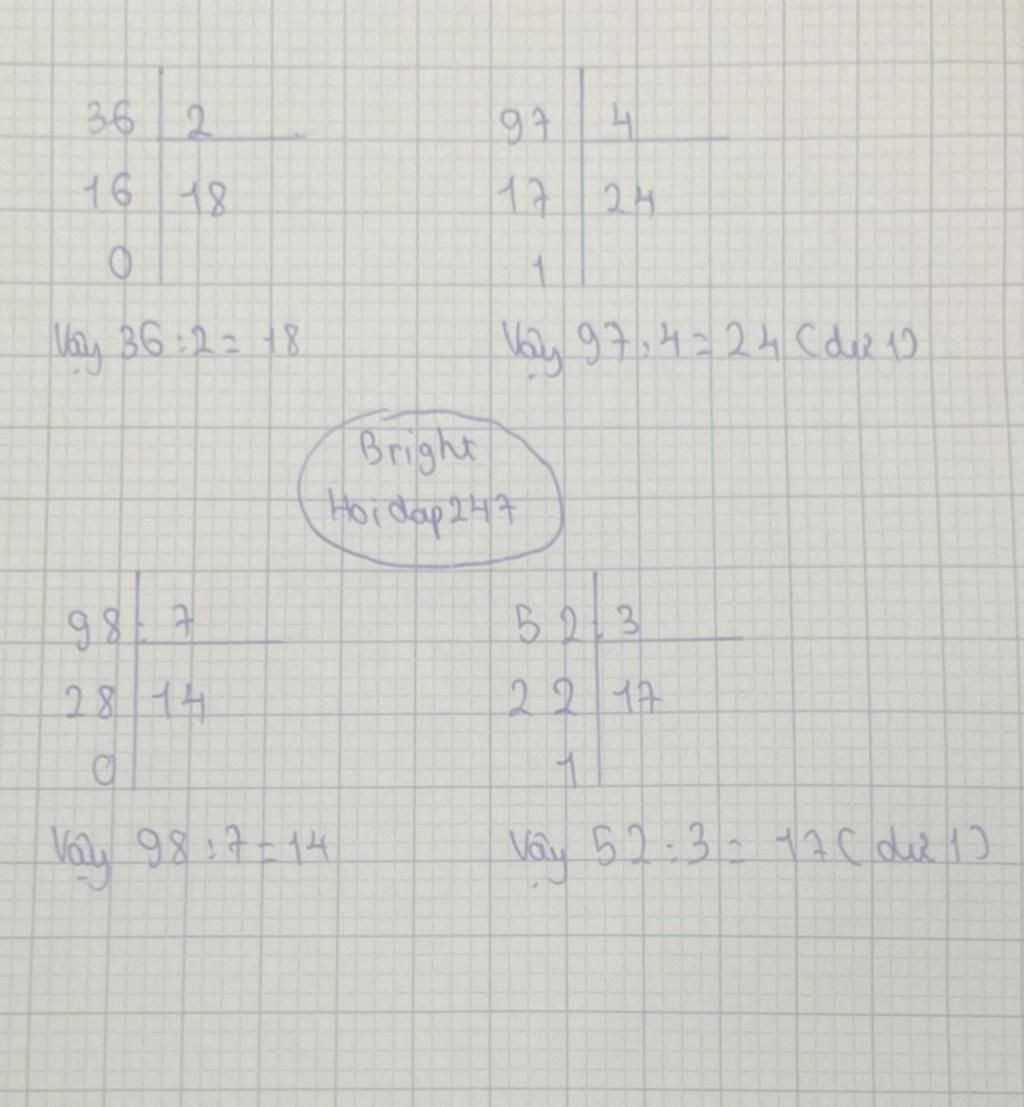 36 2
16 18
0
Vậy 36 : 2 = 18
97 4
17 24
1
Vậy 97 : 4 = 24 (dư 1)
Bright
Hoidap247
98 : 7
28 14
0
Vậy 98 : 7 = 14
52 : 3
22 17
1
Vậy 52 : 3 = 17 (dư 1)